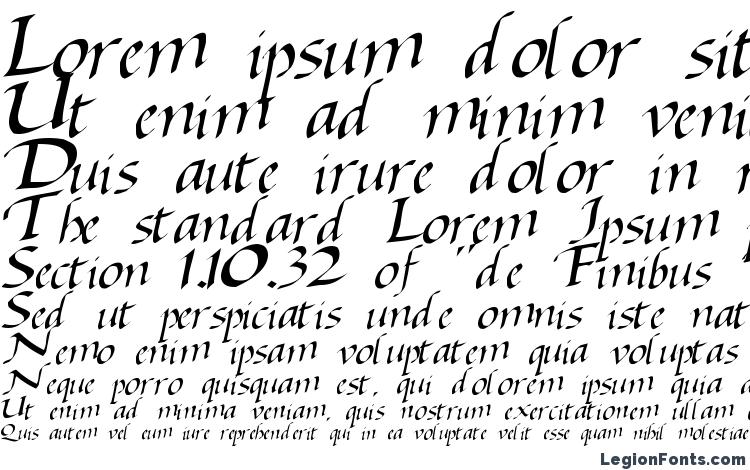 Lorem ipsum dolor sit
Ut enim ad minim veni
Duis aute irure dolor in r
The standard Lorem Ipsum
Section 1.10.32 of "de Finibus
Sed ut perspiciatis unde omnis iste nat
Nemo enim ipsam voluptatem quia voluptas
Neque porro quisquam est, qui dolorem ipsum quia d
Ut enim ad minima veniam, quis nostrum exercitationem ullam c
Quis autem vel eum iure reprehenderit qui in ea voluptate velit esse quam nihil molestiae
LegionFonts.com